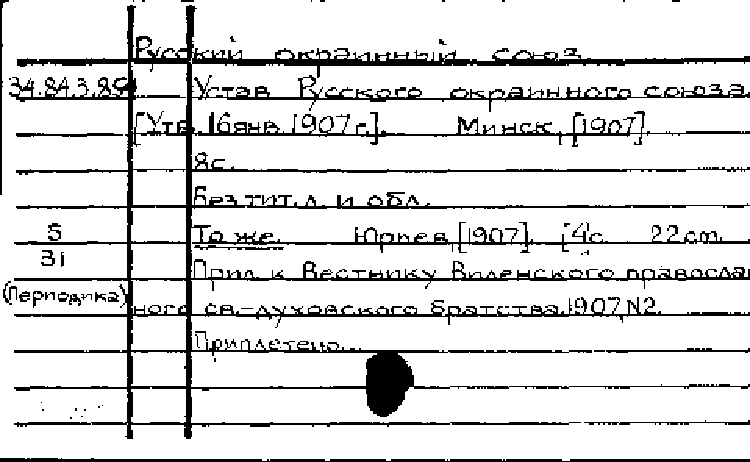 Русский окраинный союз
34.84.3.851 Устав Русского окраинного союза.
[Утв. 16 янв. 1907 г.]. Минск, [1907].
8с.
Без тит. л. и обл.
5 То же. Юрьев [1907]. 4с. 22 см.
31 Прил. к Вестнику Виленского правосла
(Периодика) ного св.-духовского братства. 1907, N2.
Приплетено.